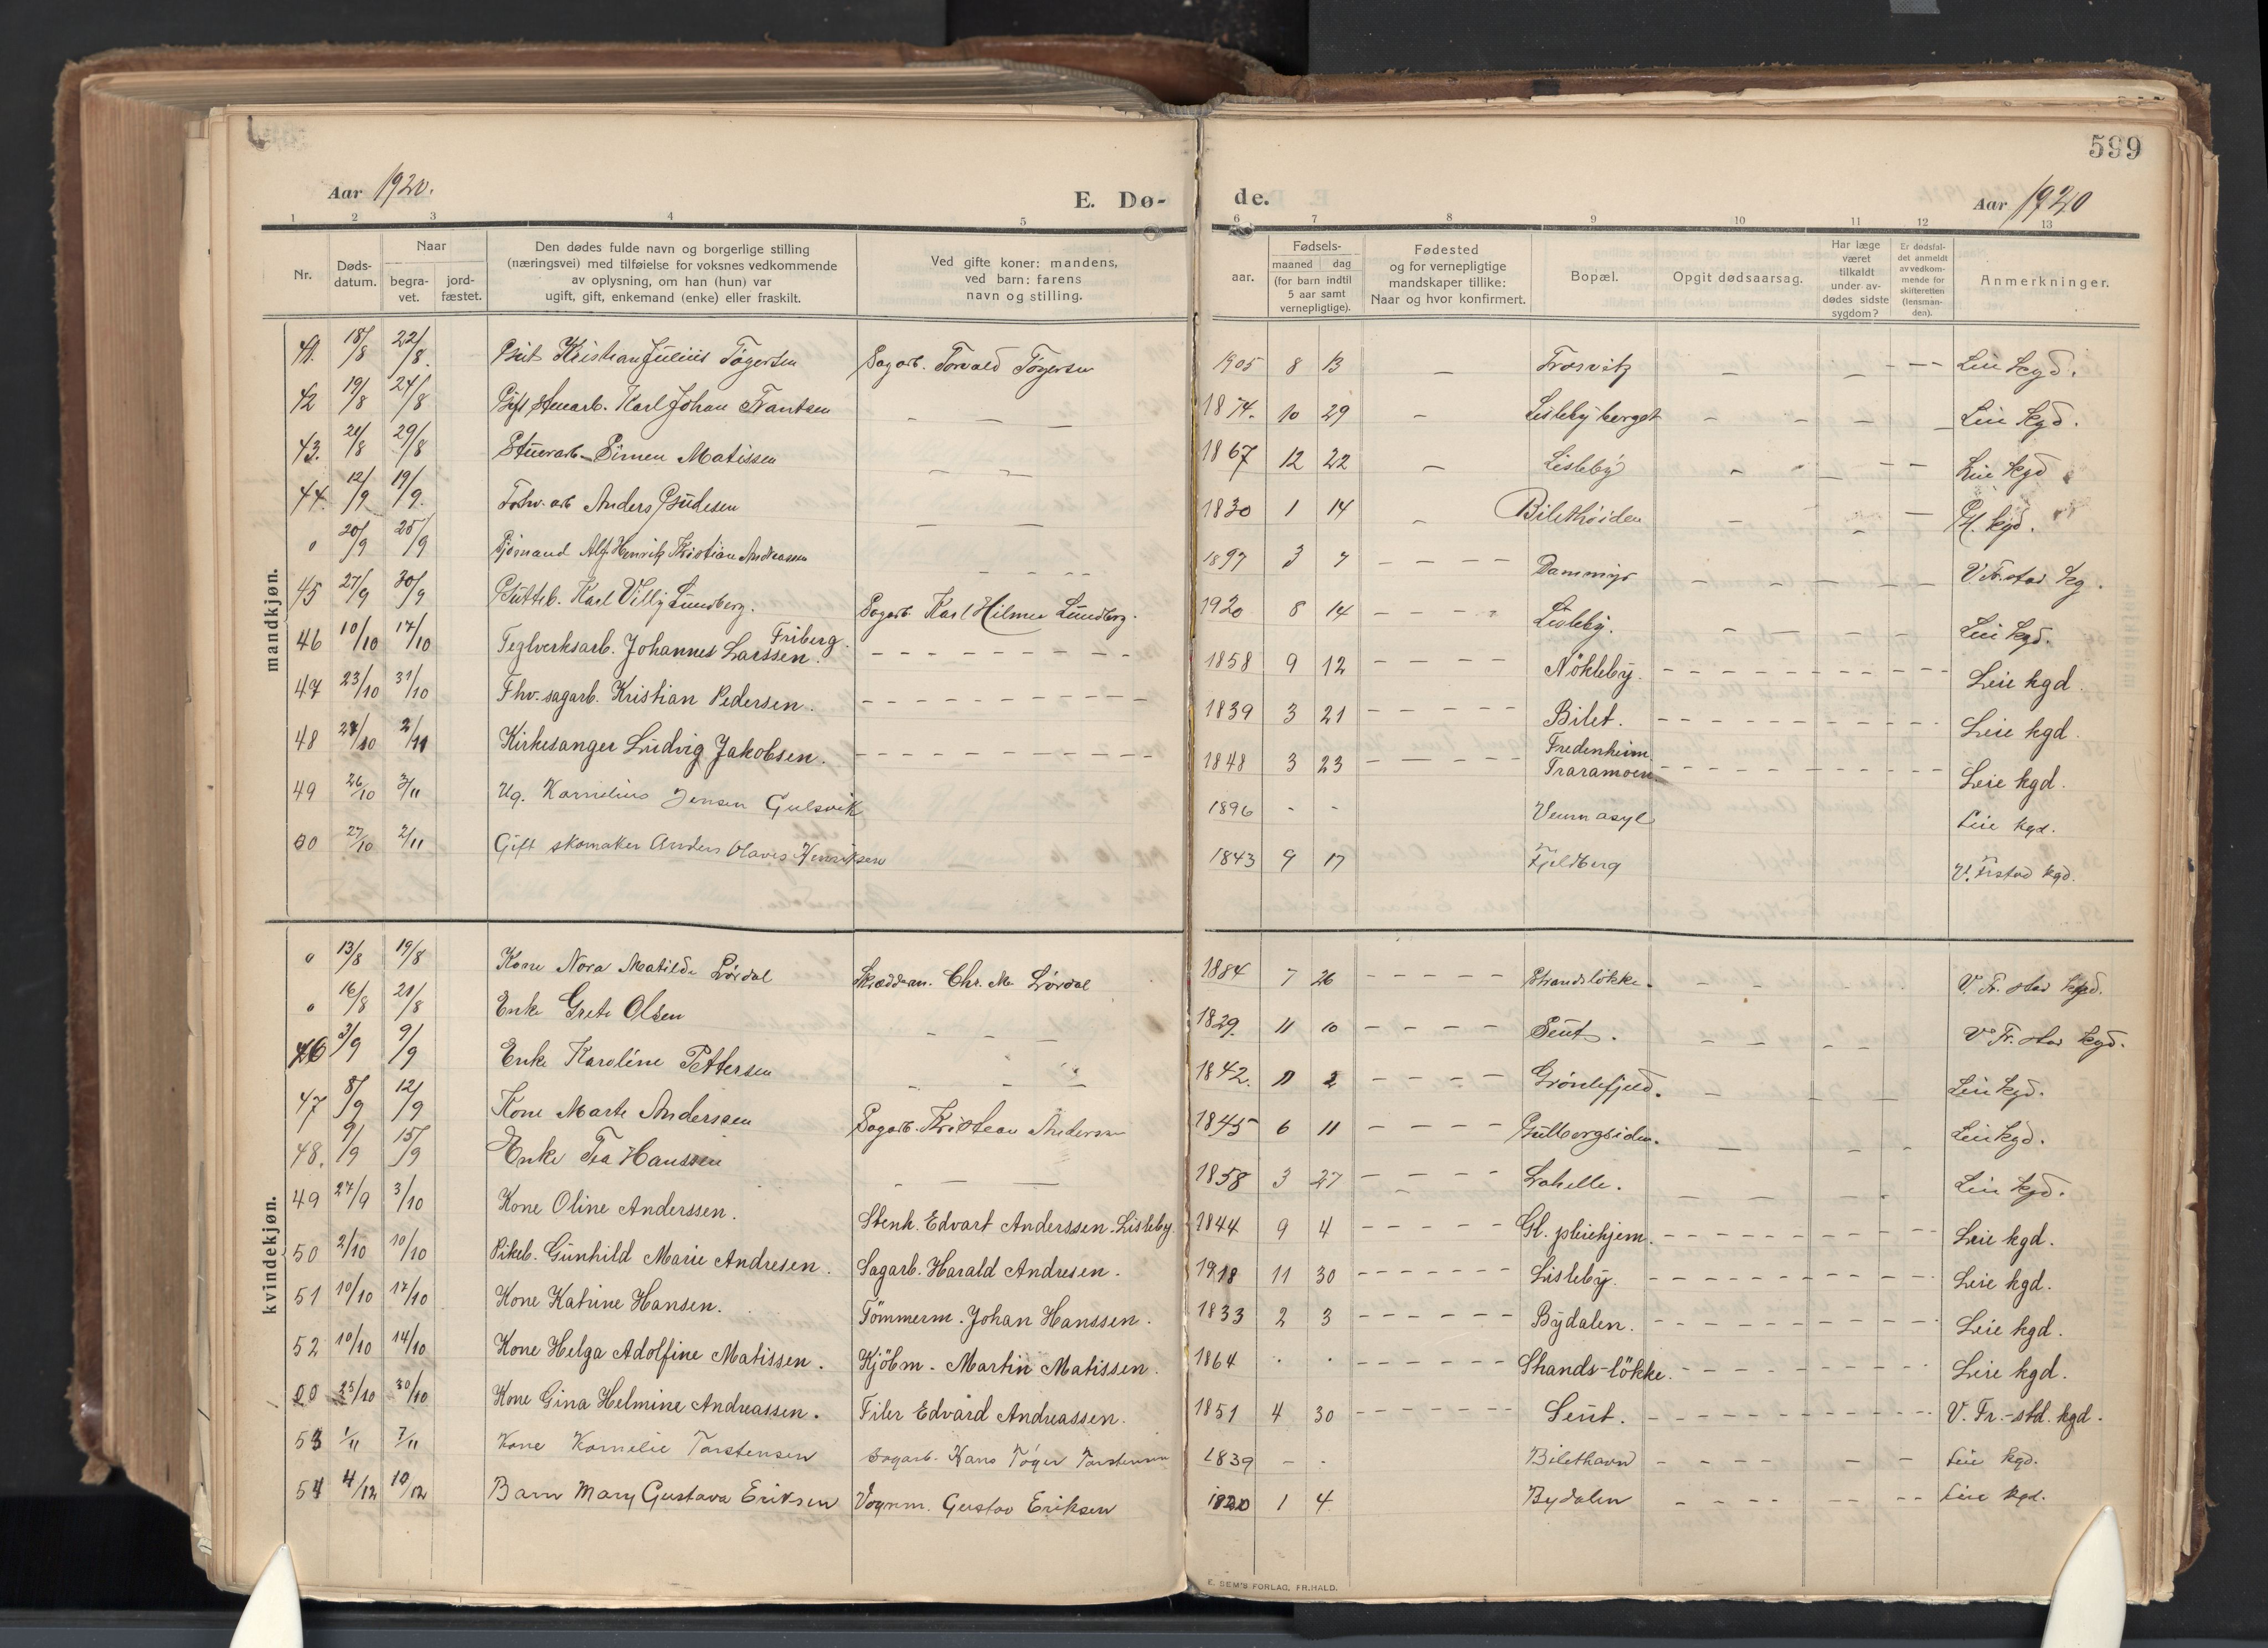 599
Aar 1920. E. Dø- de. Aar 1920
1 2 3 4 5 6 7 8 9 10 11 12 13
Nr. Døds-datum. Naar begra-vet. jord-fæstet. Den dødes fulde navn og borgerlige stilling (næringsvei) med tilføielse for voksnes vedkommende av oplysning, om han (hun) var ugift, gift, enkemand (enke) eller fraskilt. Ved gifte koner: mandens, ved barn: farens navn og stilling. aar. Fødsels- maaned dag (for barn indtil 5 aar samt vernepligtige). Fødested og for vernepligtige mandskaper tillike: Naar og hvor konfirmert. Bopæl. Opgit dødsaarsag. Har læge været tilkaldt under av-dødes sidste sygdom? Er dødsfal-det anmeldt av vedkom-mende for skifteretten (lensman-den). Anmerkninger.
mandkjøn.
41. 18/8 22/8. Kristian Julius Tøgersen Sagarb. Torvald Tøgersen 1905 8 13 — Trosvik — — - — Leie kgd.
42 19/8 24/8 Gift Stenarb. Karl Johan Frantsen — — — 1874. 10 29 - Lisleby berget - - — — Leie kgd.
43. 21/8 29/8 Stuerarb. Simen Matissen — — 1867 12 22 — Lisleby - - - — Leie kgd
44. 12/9 19/9. Fohv. arb Anders Gudesen — — 1830 1 14 - Bilethøiden - - - — Gl. kgd.
" 20/9 25/9 Sjømand Alf Henrik Kristian Andreassen - - - - 1897 3 7 - - - - Dammyr - - - - V. Fr.stad kg.
45 27/9 30/9 Gutteb. Karl Villy Lundberg. Sagarb. Karl Hilmer Lundberg. 1920 8 14 - - - - Lisleby. - - - - - Leie kgd.
46 10/10 17/10 Teglverksarb. Johannes Larssen Friberg. - - - - - - - - - 1858 9 12 - - - - Nökleby. - - - - - - - - - Leie kgd.
47 23/10 31/10 Fhv. sagarb. Kristian Pedersen. - - - - - - - - - - 1839 3 21 - - - - Bilet. - - - - - - - - - Leie kgd.
48 24/10 2/11 Kirkesanger Ludvig Jakobsen. - - - - - - - - - - - 1848 3 23 - - - - Fredenheim Traramoen - - - - - - - - - Leie kgd.
49 26/10 3/11 Ug. Kornelius Jensen Gulsvik 1896 - - Veum asyl Leie kgd.
00 27/10 2/11 Gift skomaker Anders Olaves Henriksen 1843 9 17 Fjeldberg V. Fr.stad kgd.
kvindekjøn.
" 13/8 19/8 Kone Nora Matilde Lørdal Skræddem. Chr. M. Lørdal 1884 7 26 - - - - - Strandsløkke. - - - V. Fr. stad kgd.
" 16/8 21/8 Enke Grete Olsen - - - 1829. 11 10 - - - - Seut. - - - - V. Fr. stad kgd.
46 3/9 9/9 Enke Karoline Pettersen - — — 1842. 11 2 - - - - Grønlifjeld. - - - - Leie kgd.
47 8/9 12/9 Kone Marte Anderssen Sagarb. Kristian Andersen 1845 6 11 - - - - Gulbergsiden. — - - Leie kgd.
48. 9/9 15/9 Enke Tea Hanssen - — — 1858 3 27 - - - - Lahelle. - - - - Leie kgd.
49 27/9 3/10 Kone Oline Anderssen. Stenh. Edvart Anderssen. Lisleby. 1844 9 4 - - - - - Gl. pleiehjem. - - - - - - - - - Leie kgd.
50 2/10 10/10 Pikeb. Gunhild Marie Andresen. Sagarb. Harald Andresen. 1918 11 30 - - - - - - - Lisleby. - - - - - - - - - Leie kgd.
51 10/10 17/10 Kone Katrine Hansen. Tömmerm. Johan Hanssen. 1833 2 3 - - - - - - Bydalen. - - - - - - - - - Leie kgd.
52 10/10 14/10 Kone Helga Adolfine Matissen. Kjöbm. Martin Matissen. 1864 . . - - - - - - Strands-lökke. - - - - - - - - Leie kgd.
00 25/10 30/10 Kone Gina Helmine Andreassen. Filer Edvard Andreassen. 1851 4 30 - - - - - - - Seut. - - - - - - - - - V. Fr.-std. kgd.
53 1/11 7/11 Kone Kornelie Torstensen Sagarb. Hans Tøger Torstensen 1839 - - Bilethavn - - - - - - Leie kgd.
54 4/12 10/12 Barn Mary Gustava Eriksen Vognm. Gustav Eriksen 1920 1 4. Bydalen - - - - -- -- Leie kgd.
E. SEM'S FORLAG, FR.HALD.